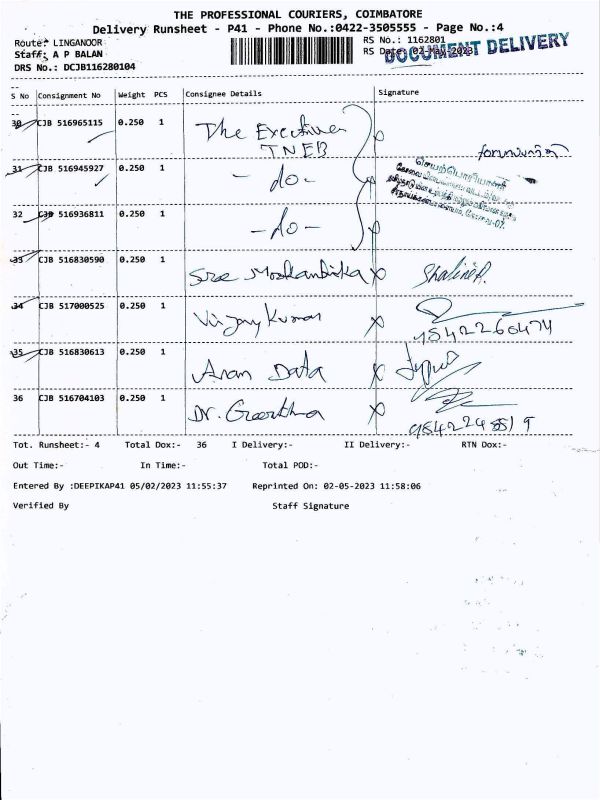 THE PROFESSIONAL COURIERS, COIMBATORE
Delivery Runsheet - P41 - Phone No.:0422-3505555 - Page No.:4
Route: LINGANOOR
RS No.: 1162801
Staff: A P BALAN
RS Date: 02-May-2023
DOCUMENT DELIVERY
DRS No.: DCJB116280104
S No Consignment No Weight PCS Consignee Details Signature
30 CJB 516965115 0.250 1 The Executive
TNEB
31 CJB 516945927 0.250 1 - do -
செயற்பொறியாளர்
32 CJB 516936811 0.250 1 - do -
33 CJB 516830590 0.250 1 Sree Mookambika x Shalini.R.
34 CJB 517000525 0.250 1 Vijay Kumar x
9542260474
35 CJB 516830613 0.250 1 Aram Data x
36 CJB 516704103 0.250 1 Dr. Geertha x
Tot. Runsheet:- 4 Total Dox:- 36 I Delivery:- II Delivery:- RTN Dox:-
Out Time:- In Time:- Total POD:-
Entered By :DEEPIKAP41 05/02/2023 11:55:37 Reprinted On: 02-05-2023 11:58:06
Verified By Staff Signature